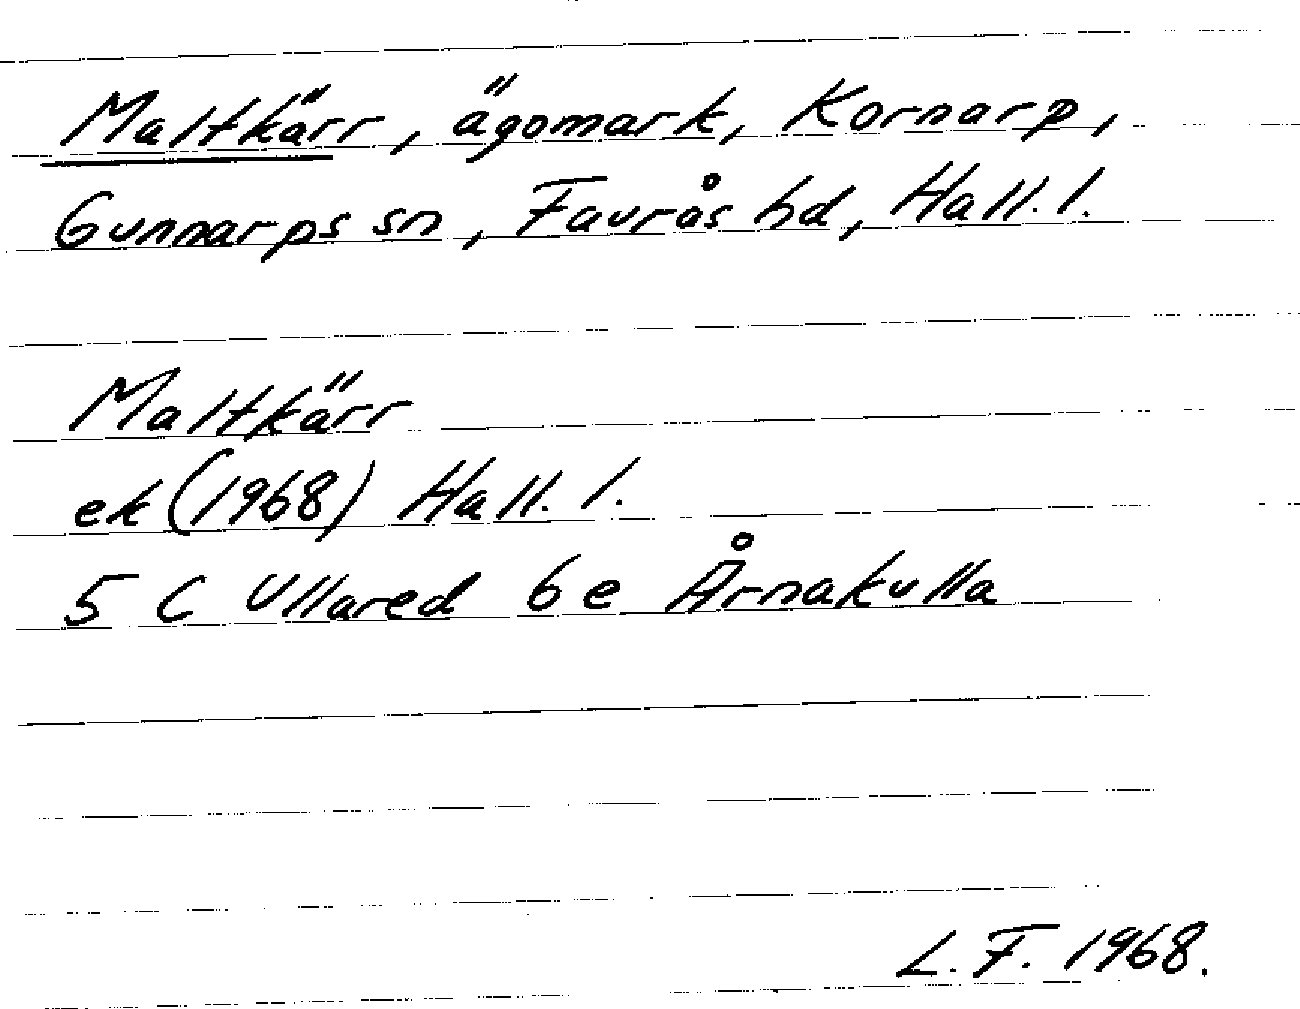 Maltkärr, ägomark, Kornarp,
Gunnarps sn, Faurås hd, Hall. l.
Maltkärr
ek (1968) Hall. l.
5 C Ullared 6e Årnakulla
L. F. 1968.